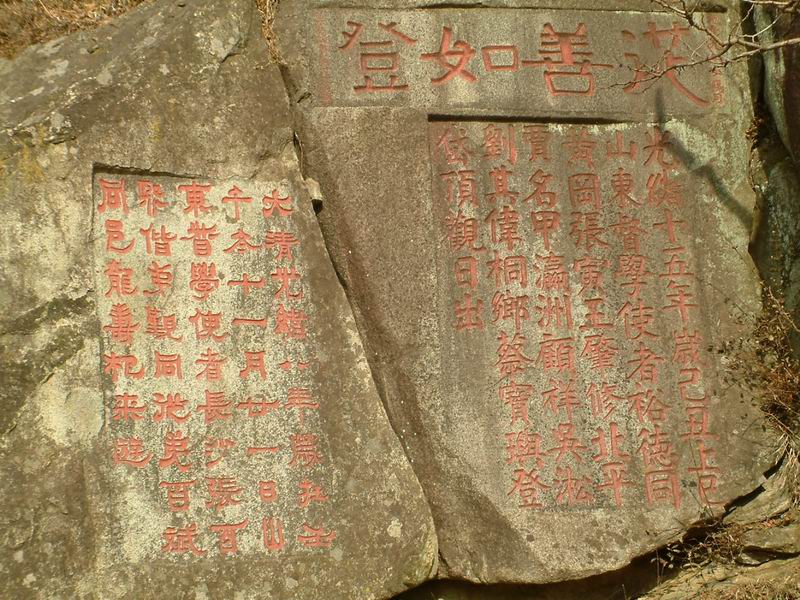 從善如登
光緒十五年歲己丑上巳
山東督學使者裕德同
黃岡張寅玉肇修北平
賈名甲瀛洲顧祥吳淞
劉其偉桐鄉蔡寶璵登
岱頂觀日出
大清光緒八年歲在壬
午冬十一月廿一日山
東督學使者長沙張百
熙偕弟同從兄百斌
同邑龍壽來遊